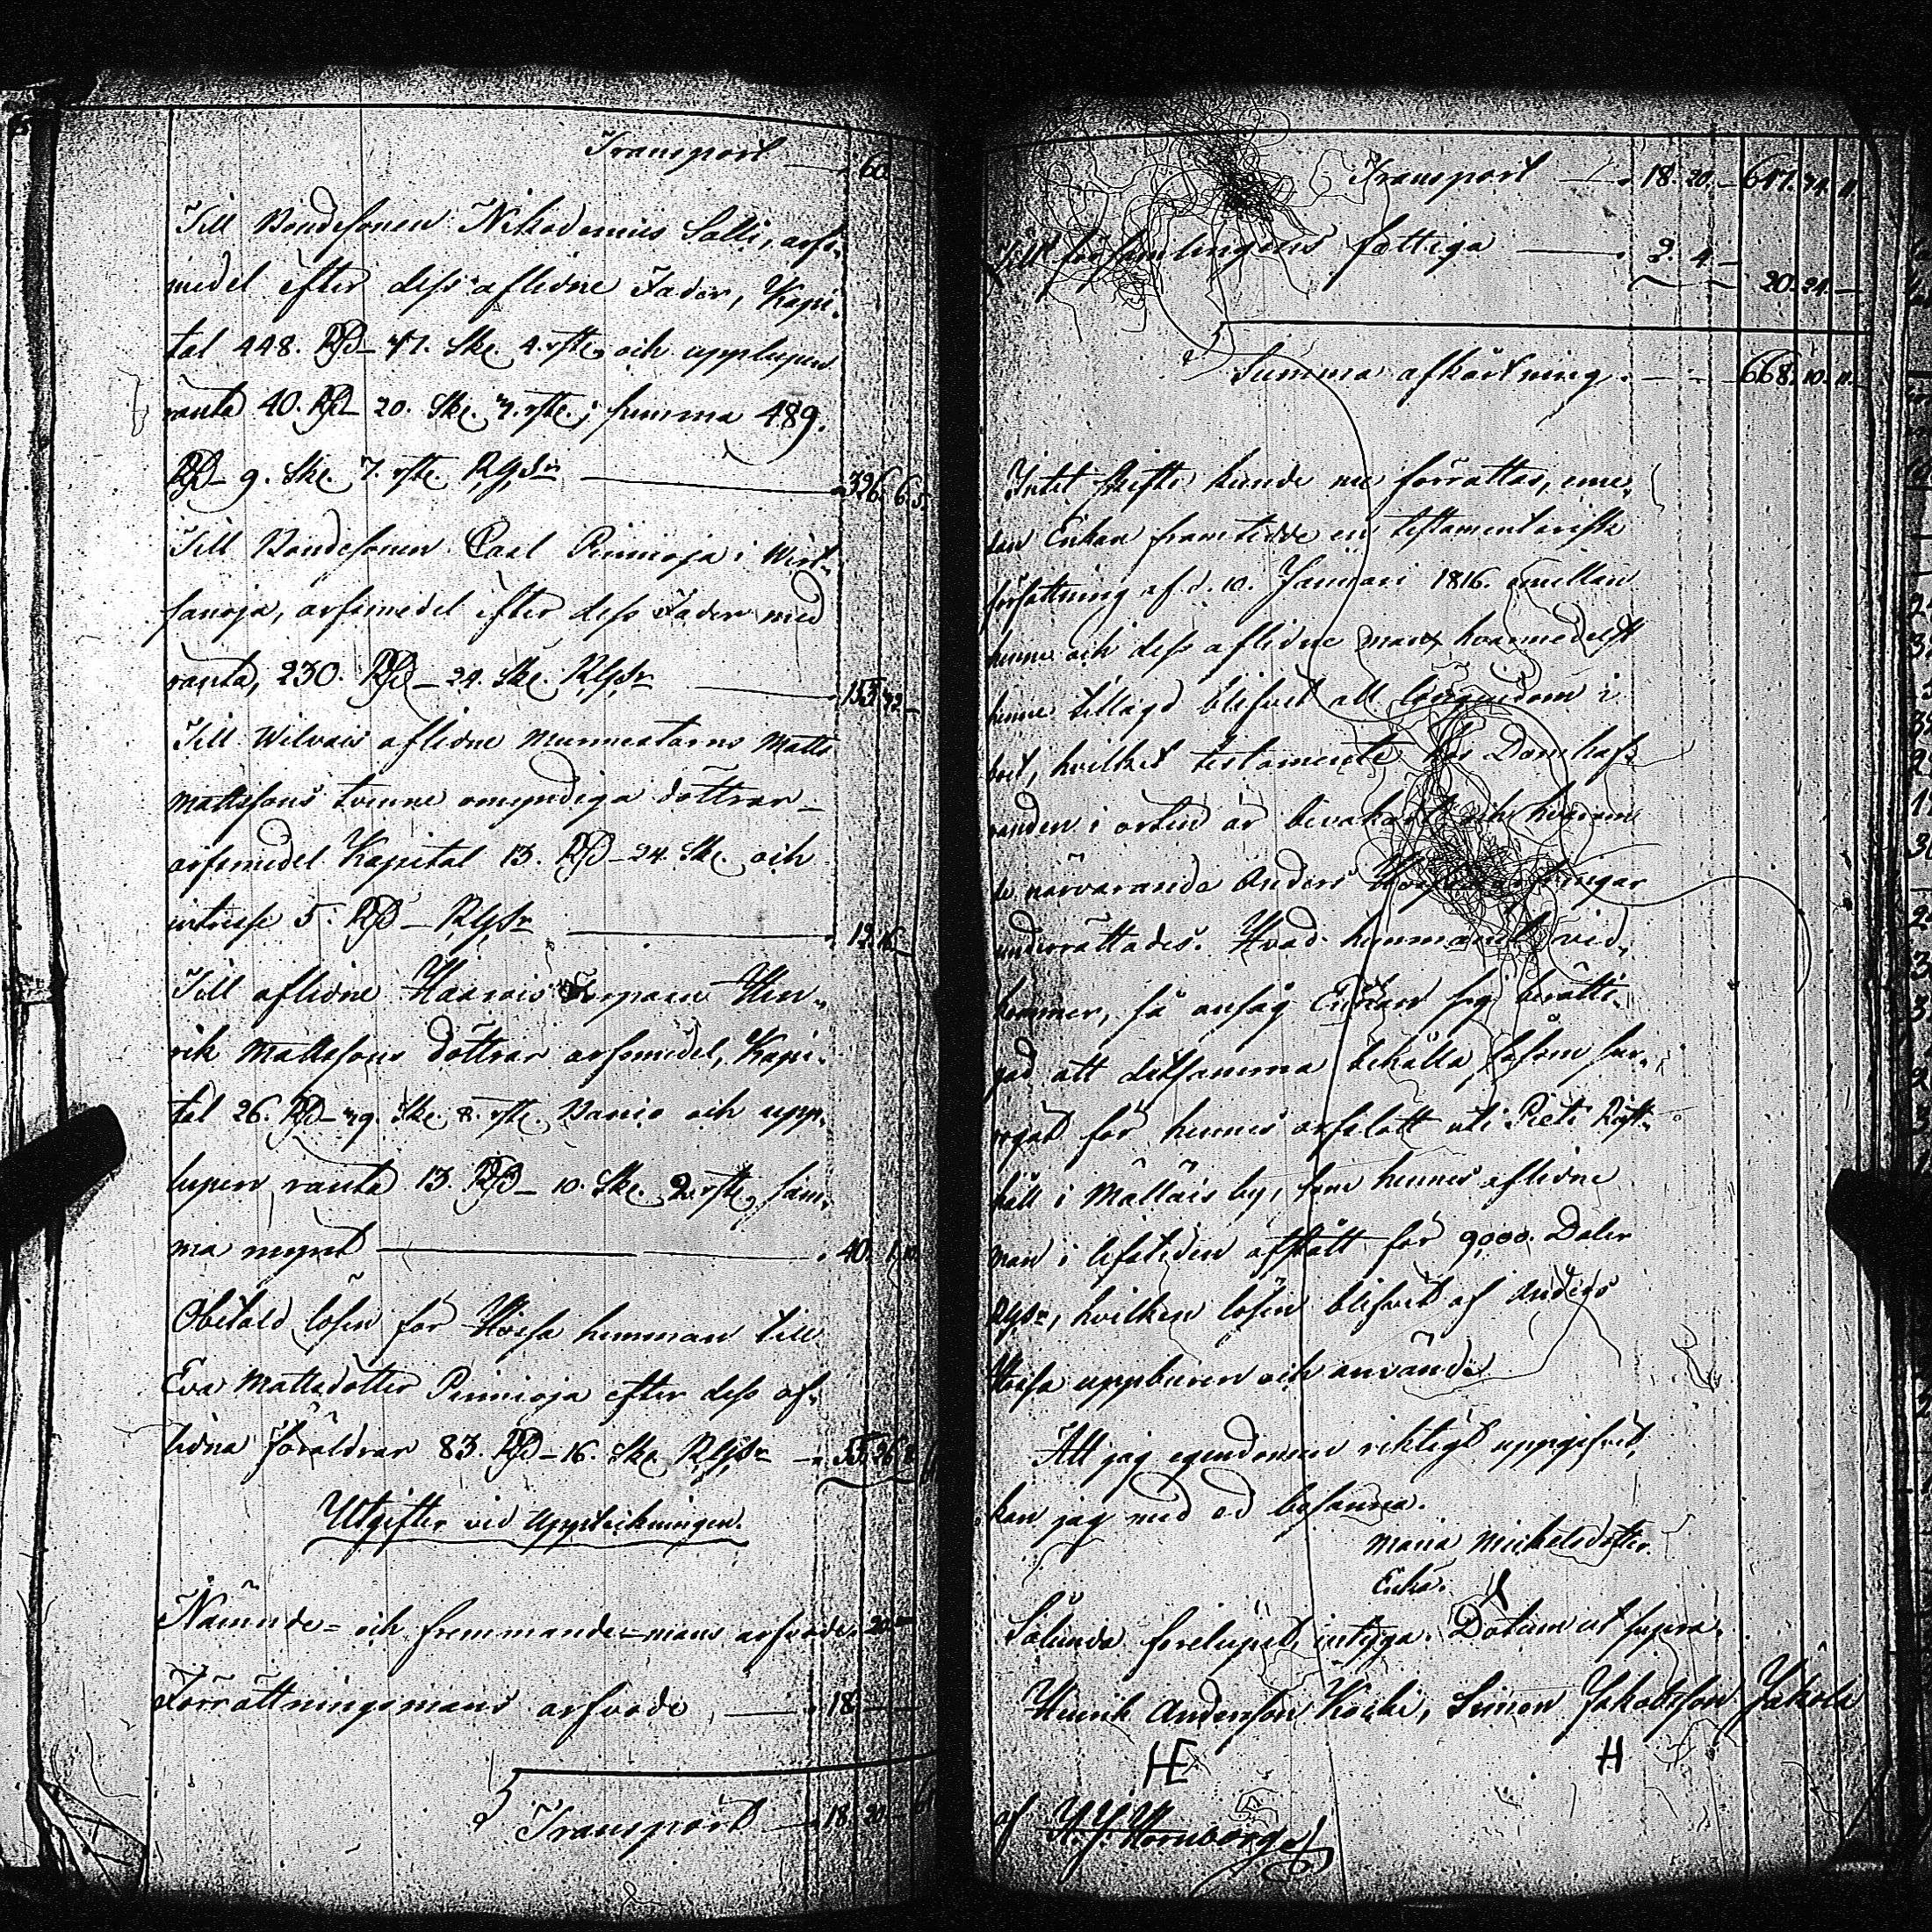 Transport — 60. —
Till Bondesonen Nikodemus Salli, arfs-
medel efter dess aflidne Fader, Kapi-
tal 448. Rd – 47. Sk. 4. rst. och upplupen
ränta 40. Rd – 20. Sk. 7. rst.; summa 489.
Rd – 9. Sk. 7. rst. Rgs — 326. 6. 5.
Till Bondesonen Carl Pernioja i Wirt-
sanoja, arfsmedel efter dess Fader med
ränta, 230. Rd – 24. Sk. — 153. 42. —
Till aflidne Matts
Mattssons tvenne omyndiga döttrar –
arfsmedel Kapital 13. Rd – 24. Sk. och
intresse 5. Rd – — 12. 16. —
Till aflidne Hen-
rik Mattssons döttrar arfsmedel, Kapi-
tal 26. Rd – 39. Sk. 8. rst. Banco och upp-
lupen ränta 13. Rd – 10. Sk. 2. rst., sum-
ma mynt — 40. 1. 10.
Obetald lösen för Hossa hemman till
Eva Mattsdotter Pernioja efter dess af-
lidna föräldrar 83. Rd – 16. Sk. — 55. 26. 8.
Utgifter vid Uppteckningen.
Nämnde- och fremmande-mans arfvode . 20. —
Förrättningsmans arfvode — 18. — —
Transport — 18. 20. —
Transport — 18. 20. – 647. 34. 11.
Till församlingens fattiga — 2. 4. –
20. 24. —
Summa afkortning — 668. 10. 11.
Intet skifte kunde nu förrättas, eme-
dan Enkan framtedde en testamentarisk
författning af d. 10. Januari 1816. emellan
henne och dess aflidne man, hvarmedelst
henne tillagd blifvit all lösegendom i
boet, hvilket testamente hos Domhaf-
vanden i orten är bevakadt och hvarom
de närvarande Anders arfvingar
underrättades. Hvad hemmanet vid-
kommer, så ansåg Enkan sig berätti-
gad att detsamma behålla, såsom sur-
rogat för hennes arfslott uti Pieti Rust-
håll i by, som hennes aflidne
man i lifstiden afstått för 9000. Daler
hvilken lösen blifvit af Anders
Hossa uppburen och använd.
Att jag egendomen riktigt uppgifvit,
kan jag med ed besanna.
Maria Michelsdotter.
Enka.
Sålunda förelupet, intyga. Datum ut supra.
Henrik Andersson Simon Jakobsson Jakola
HE H
af H. J. Hornborg